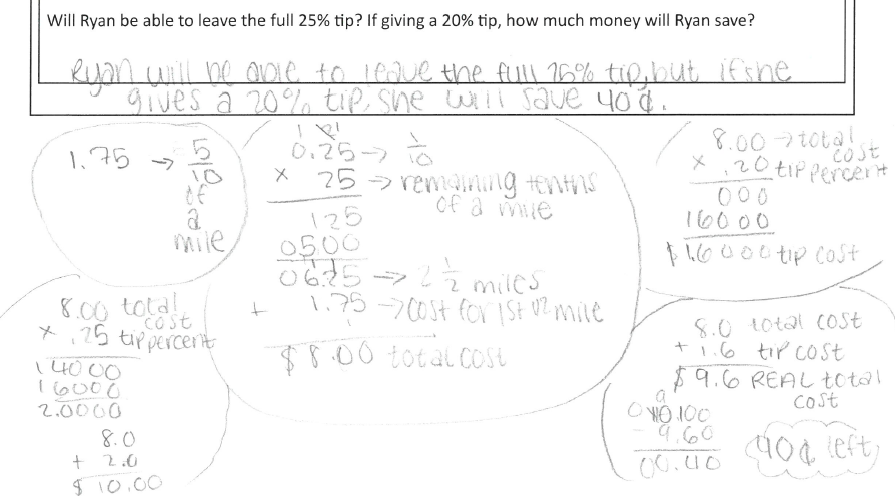 Will Ryan be able to leave the full 25% tip? If giving a 20% tip, how much money will Ryan save?
Ryan will be able to leave the full 25% tip, but if she
gives a 20% tip, she will save 40¢.
1.75 → 5/10
of
a
mile
0.25 → 1/10
× 25 → remaining tenths
of a mile
125
0500
0625 → 2 1/2 miles
+ 1.75 → cost for 1st 1/2 mile
$8.00 total cost
8.00 → total
cost
× .20 tip percent
000
16000
$1.6000 tip cost
8.00 total
cost
× .25 tip percent
14000
16000
2.0000
8.0
+ 2.0
$10.00
8.0 total cost
+ 1.6 tip cost
$9.6 REAL total
cost
- 9.60
00.40
40¢ left